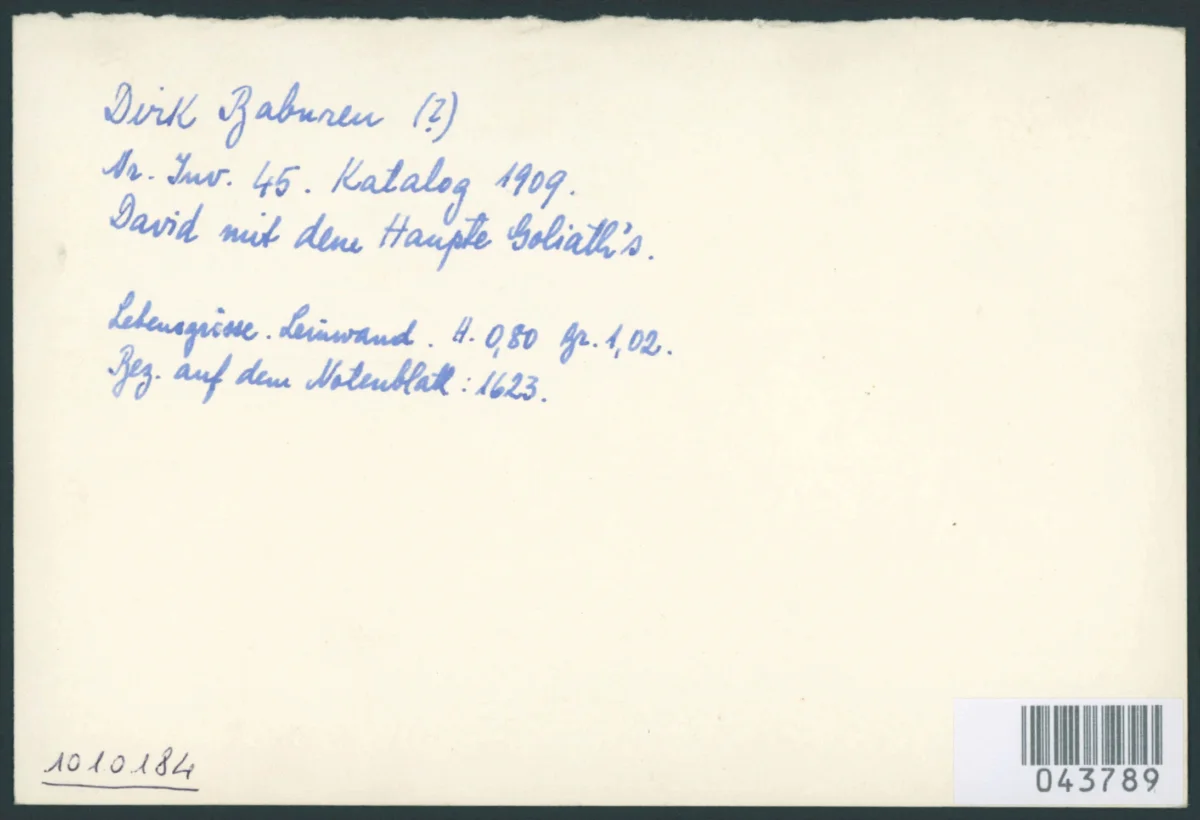 Dirk Baburen (?)
Nr. Inv. 45. Katalog 1909.
David mit dem Haupte Goliath's.
Lebensgrösse. Leinwand. H. 0,80 Br. 1,02.
Bez. auf dem Notenblatt: 1623.
1010184
043789